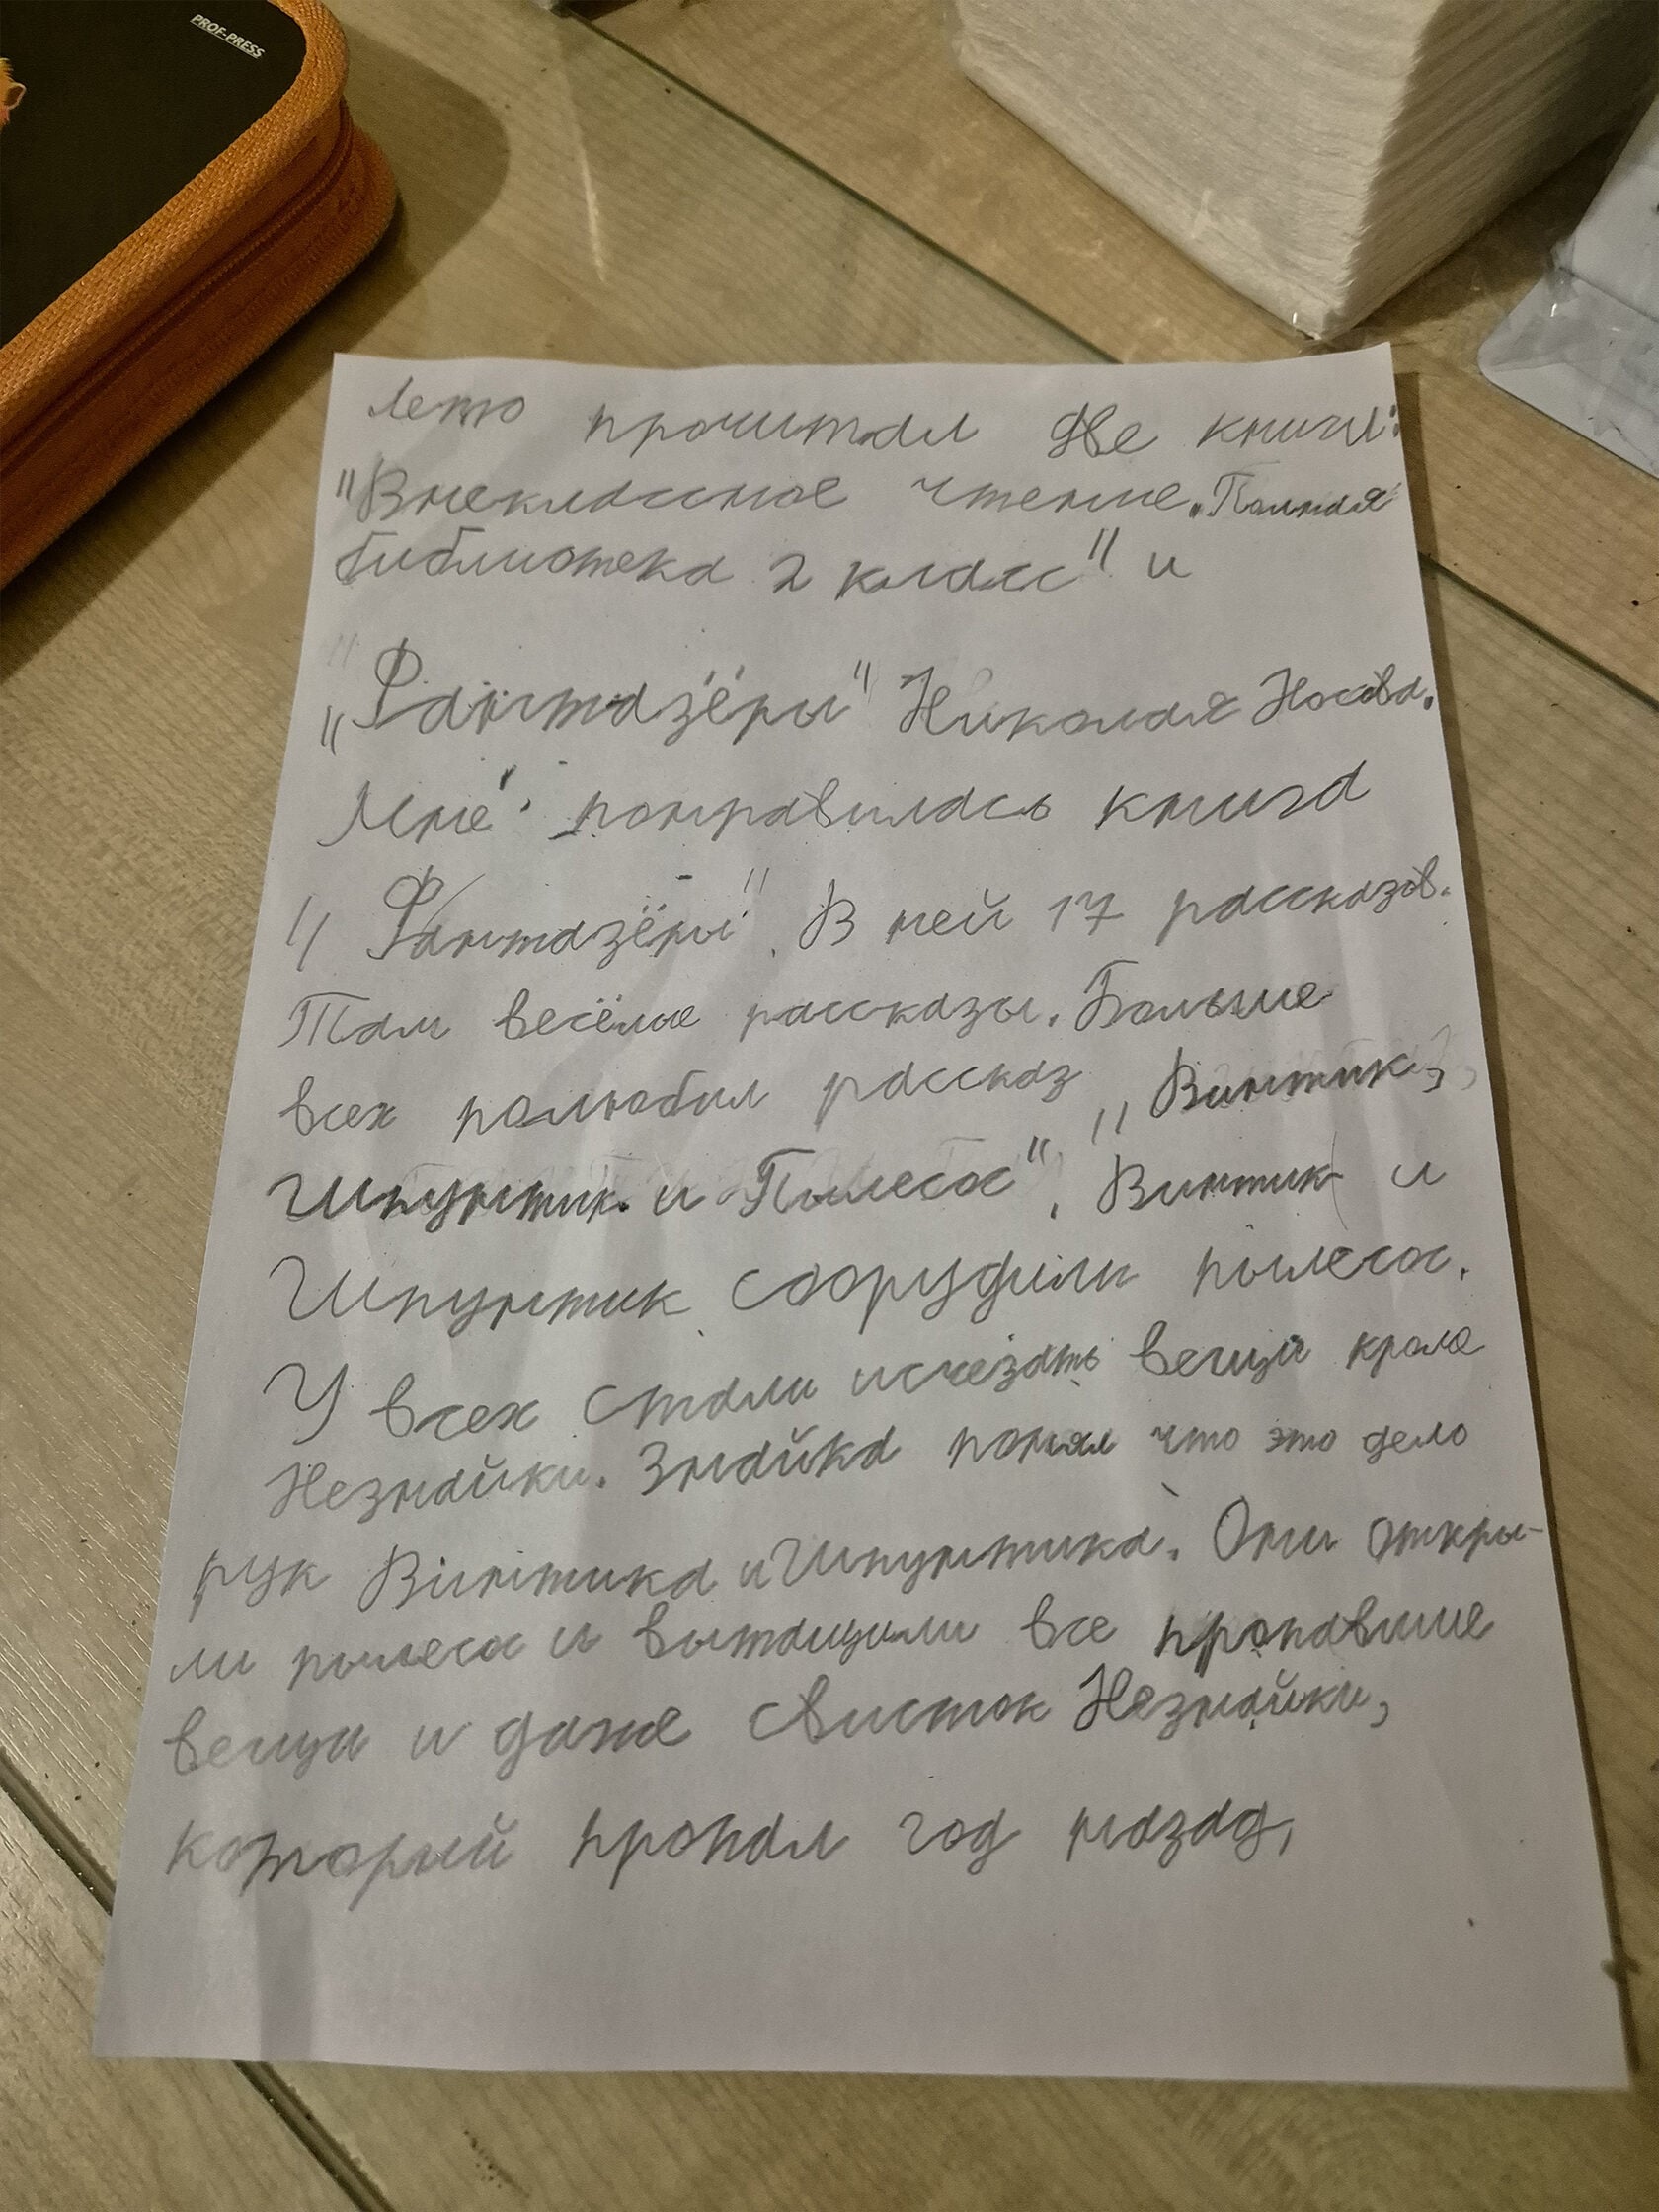 PROF-PRESS
лето прочитал две книги:
"Внеклассное чтение. Полная
библиотека 2 класс" и
„Фантазёры" Николая Носова.
Мне понравилась книга
„Фантазёры". В ней 17 рассказов.
Там весёлые рассказы. Больше
всех полюбил рассказ „Винтик,
Шпунтик и Пылесос". Винтик и
Шпунтик соорудили пылесос.
У всех стали исчезать вещи кроме
Незнайки. Знайка понял что это дело
рук Винтика и Шпунтика. Они откры-
ли пылесос и вытащили все пропавшие
вещи и даже свисток Незнайки,
который пропал год назад,